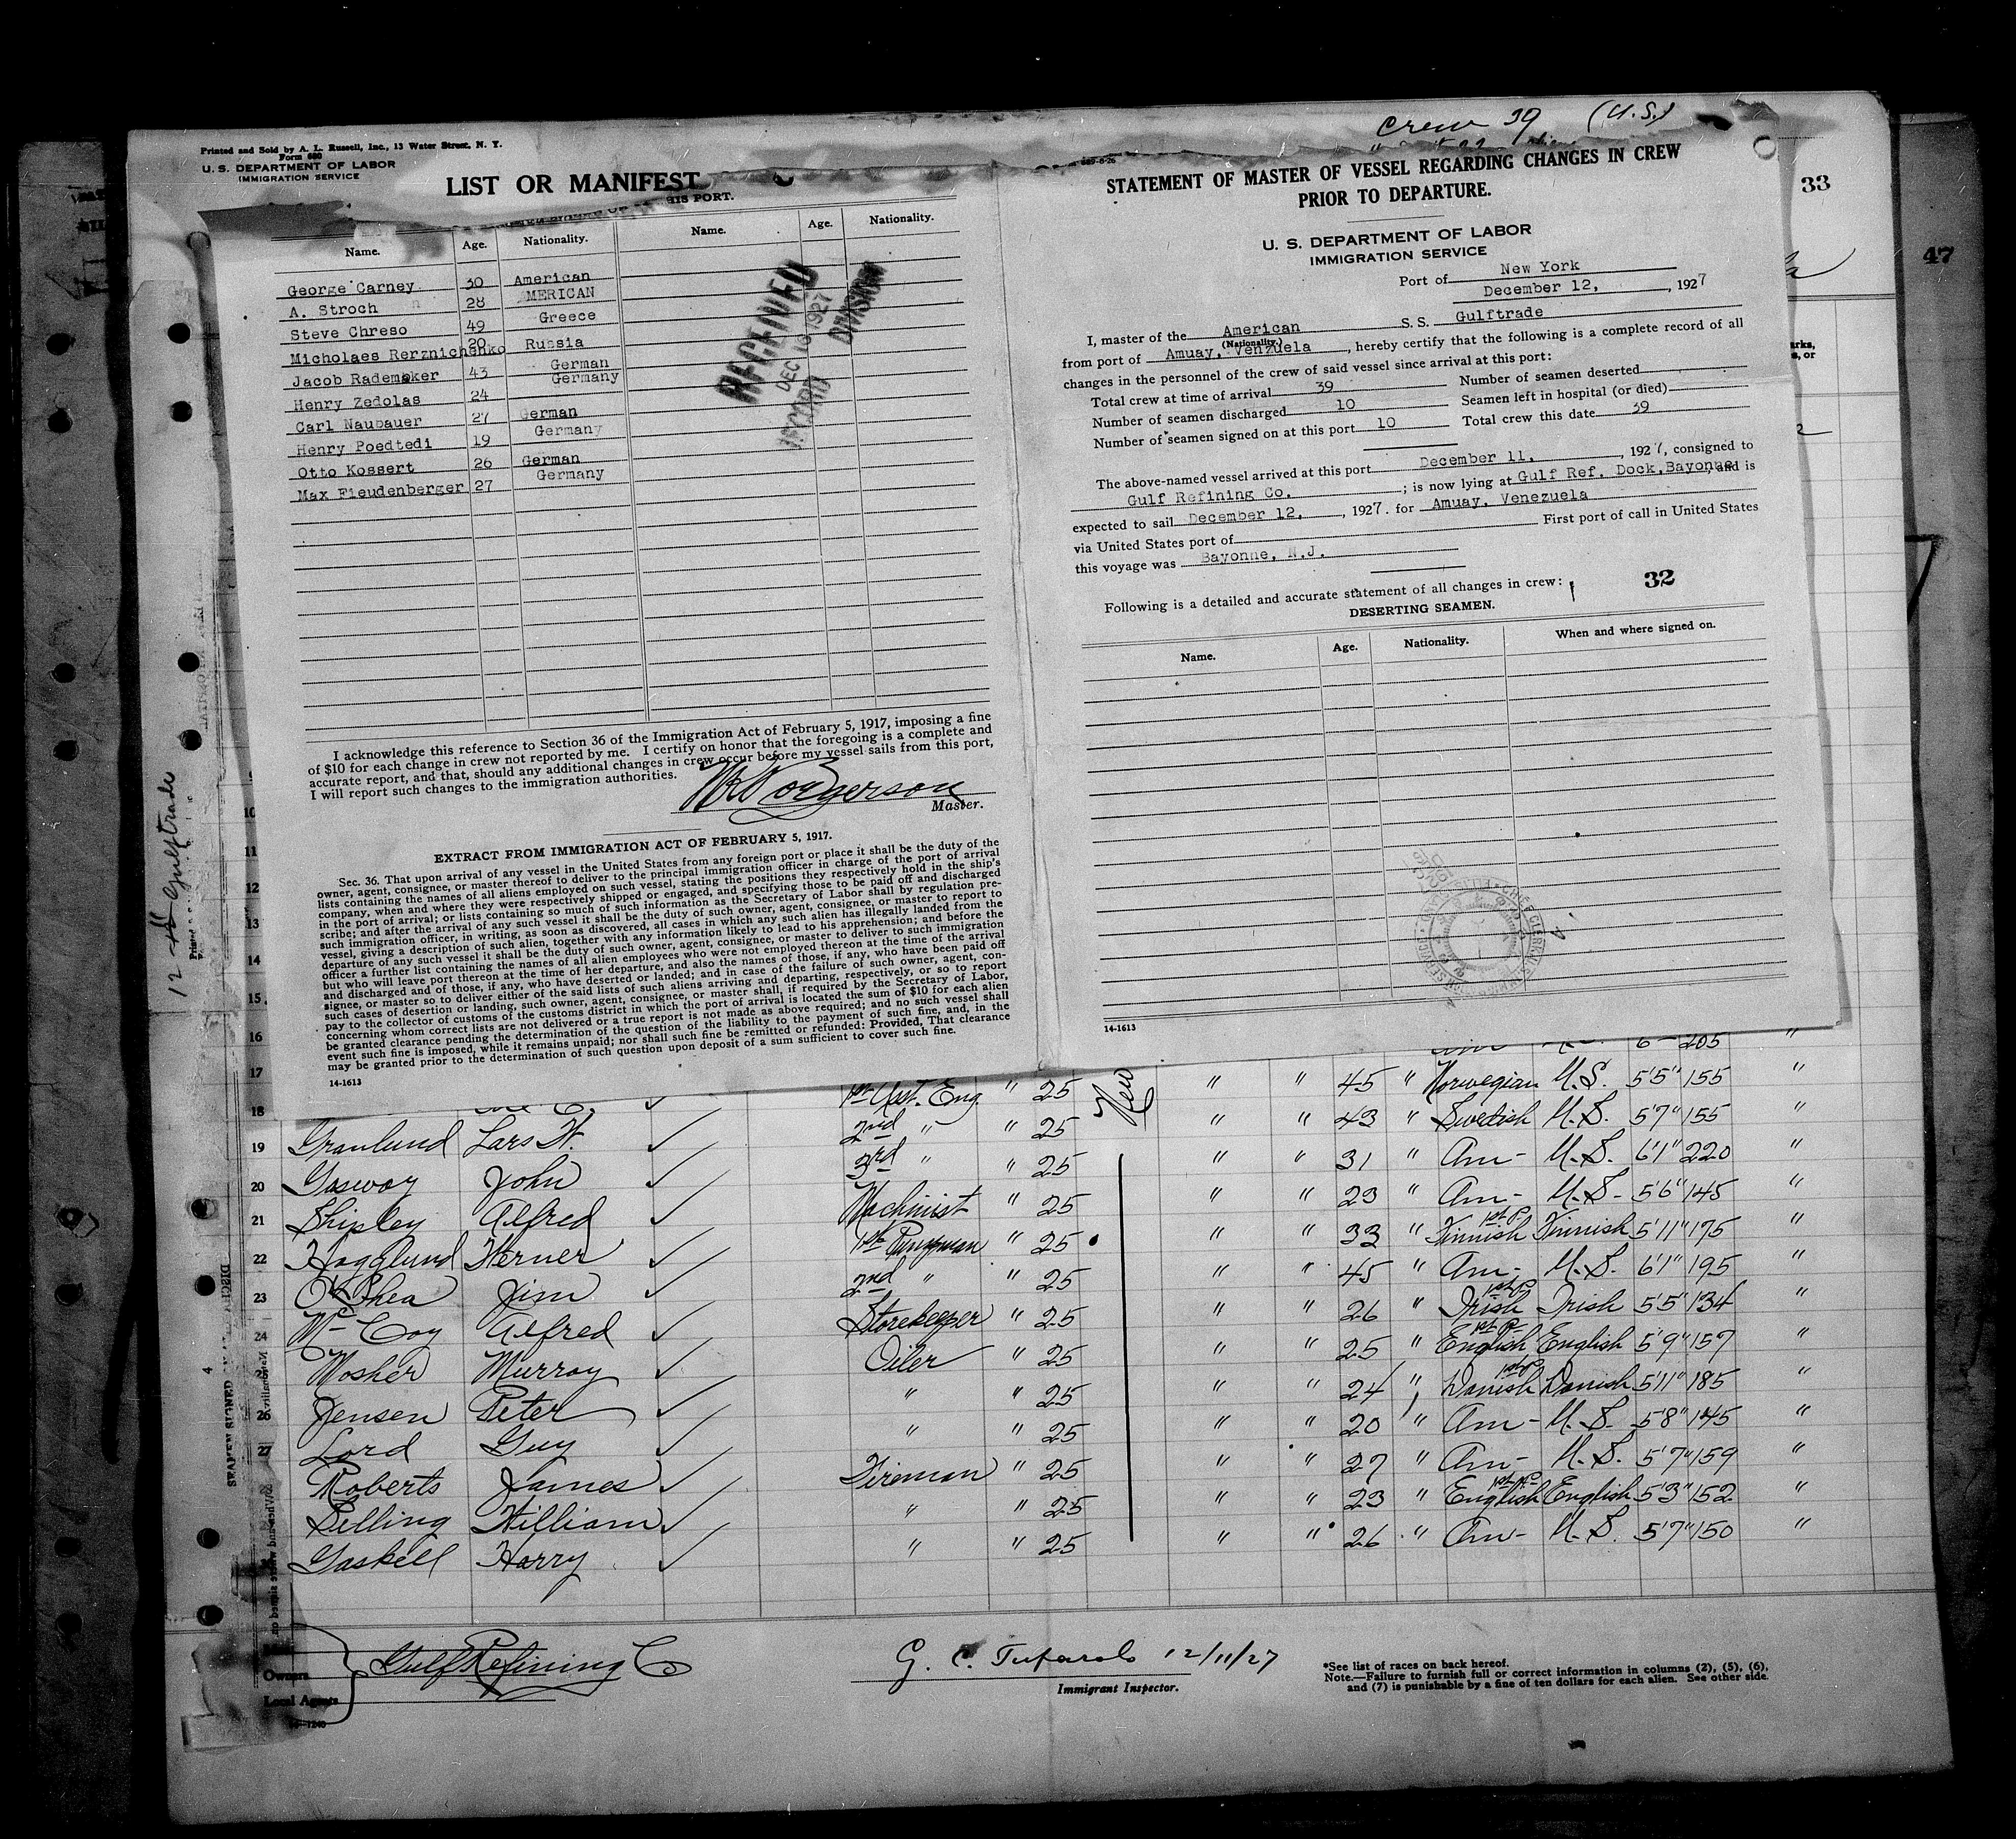 Printed and Sold by A. L. Russell, Inc., 13 Water Street, N. Y.
Form 680
U. S. DEPARTMENT OF LABOR
IMMIGRATION SERVICE
LIST OR MANIFEST
HIS PORT.
Name. Age. Nationality. Name. Age. Nationality.
George Carney 30 American
A. Stroch 28 MERICAN
Steve Chreso 49 Greece
Micholaes Rerznichenko 20 Russia
Jacob Rademaker 43 German
Henry Zedolas 24 Germany
Carl Naubauer 27 German
Henry Poedtedi 19 Germany
Otto Kossert 26 German
Max Fieudenberger 27 Germany
RECEIVED
DEC 16 1927
RECORD DIVISION
I acknowledge this reference to Section 36 of the Immigration Act of February 5, 1917, imposing a fine
of $10 for each change in crew not reported by me. I certify on honor that the foregoing is a complete and
accurate report, and that, should any additional changes in crew occur before my vessel sails from this port,
I will report such changes to the immigration authorities.
Master.
EXTRACT FROM IMMIGRATION ACT OF FEBRUARY 5, 1917.
Sec. 36. That upon arrival of any vessel in the United States from any foreign port or place it shall be the duty of the
owner, agent, consignee, or master thereof to deliver to the principal immigration officer in charge of the port of arrival
lists containing the names of all aliens employed on such vessel, stating the positions they respectively hold in the ship's
company, when and where they were respectively shipped or engaged, and specifying those to be paid off and discharged
in the port of arrival; or lists containing so much of such information as the Secretary of Labor shall by regulation pre-
scribe; and after the arrival of any such vessel it shall be the duty of such owner, agent, consignee, or master to report to
such immigration officer, in writing, as soon as discovered, all cases in which any such alien has illegally landed from the
vessel, giving a description of such alien, together with any information likely to lead to his apprehension; and before the
departure of any such vessel it shall be the duty of such owner, agent, consignee, or master to deliver to such immigration
officer a further list containing the names of all alien employees who were not employed thereon at the time of the arrival
but who will leave port thereon at the time of her departure, and also the names of those, if any, who have been paid off
and discharged and of those, if any, who have deserted or landed; and in case of the failure of such owner, agent, con-
signee, or master so to deliver either of the said lists of such aliens arriving and departing, respectively, or so to report
such cases of desertion or landing, such owner, agent, consignee, or master shall, if required by the Secretary of Labor,
pay to the collector of customs of the customs district in which the port of arrival is located the sum of $10 for each alien
concerning whom correct lists are not delivered or a true report is not made as above required; and no such vessel shall
be granted clearance pending the determination of the question of the liability to the payment of such fine, and, in the
event such fine is imposed, while it remains unpaid; nor shall such fine be remitted or refunded: Provided, That clearance
may be granted prior to the determination of such question upon deposit of a sum sufficient to cover such fine.
14-1613
Crew 39 (U.S.)
STATEMENT OF MASTER OF VESSEL REGARDING CHANGES IN CREW
PRIOR TO DEPARTURE.
U. S. DEPARTMENT OF LABOR
IMMIGRATION SERVICE
Port of New York
December 12, , 1927
I, master of the American S. S. Gulftrade
(Nationality.)
from port of Amuay, Venzuela , hereby certify that the following is a complete record of all
changes in the personnel of the crew of said vessel since arrival at this port:
Total crew at time of arrival 39 Number of seamen deserted
Number of seamen discharged 10 Seamen left in hospital (or died)
Number of seamen signed on at this port 10 Total crew this date 39
The above-named vessel arrived at this port December 11, , 1927, consigned to
Gulf Refining Co. ; is now lying at Gulf Ref. Dock, Bayonne, and is
expected to sail December 12, , 1927. for Amuay, Venezuela
via United States port of First port of call in United States
this voyage was Bayonne, N.J.
32
Following is a detailed and accurate statement of all changes in crew:
DESERTING SEAMEN.
Name. Age. Nationality. When and where signed on.
14-1613
33
47
12 - 11 Gulftrade
10
11
12
13
14
15
16 6 205 "
17 1st Asst. Eng. " 25 New " " 45 " Norwegian U.S. 5'5" 155 "
18 2nd " " 25 " " 43 " Swedish U.S. 5'7" 155 "
19 Granlund Lars W. 3rd " " 25 " " 31 " Am- U.S. 6'1" 220 "
20 Gasway John Machinist " 25 " " 23 " Am- U.S. 5'6" 145 "
21 Shipley Alfred 1st Pumpman " 25 " " 33 " 1st P. Finnish Finnish 5'11" 175 "
22 Hagglund Werner 2nd " " 25 " " 45 " Am- U.S. 6'1" 195 "
23 O'Shea Jim Storekeeper " 25 " " 26 " 1st P. Irish Irish 5'5" 134 "
24 McCoy Alfred Oiler " 25 " " 25 " 1st P. English English 5'9" 157 "
25 Mosher Murray " " 25 " " 24 " 1st P. Danish Danish 5'11" 185 "
26 Jensen Peter " " 25 " " 20 " Am- U.S. 5'8" 145 "
27 Lord Guy Fireman " 25 " " 27 " Am- U.S. 5'7" 159 "
Roberts James " " 25 " " 23 " English English 5'3" 152 "
Selling William " " 25 " " 26 " Am- U.S. 5'7" 150 "
Gaskell Harry
Owners
Local Agents
Gulf Refining Co
12/11/27
Immigrant Inspector.
*See list of races on back hereof.
Note.—Failure to furnish full or correct information in columns (2), (5), (6),
and (7) is punishable by a fine of ten dollars for each alien. See other side.